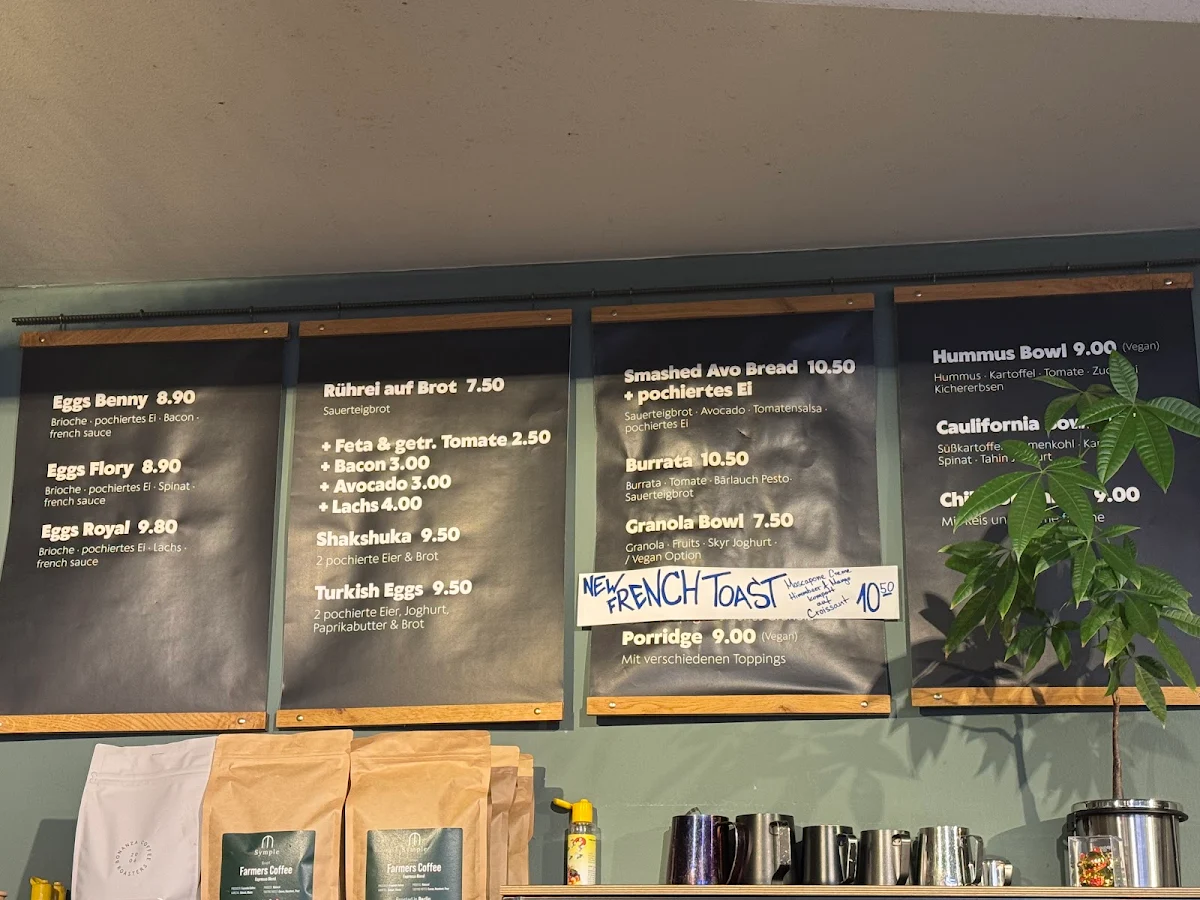 Eggs Benny 8.90
Brioche · pochiertes Ei · Bacon ·
french sauce
Eggs Flory 8.90
Brioche · pochiertes Ei · Spinat ·
french sauce
Eggs Royal 9.80
Brioche · pochiertes Ei · Lachs ·
french sauce
Rührei auf Brot 7.50
Sauerteigbrot
+ Feta & getr. Tomate 2.50
+ Bacon 3.00
+ Avocado 3.00
+ Lachs 4.00
Shakshuka 9.50
2 pochierte Eier & Brot
Turkish Eggs 9.50
2 pochierte Eier, Joghurt,
Paprikabutter & Brot
Smashed Avo Bread 10.50
+ pochiertes Ei
Sauerteigbrot · Avocado · Tomatensalsa ·
pochiertes Ei
Burrata 10.50
Burrata · Tomate · Bärlauch Pesto ·
Sauerteigbrot
Granola Bowl 7.50
Granola · Fruits · Skyr Joghurt ·
/ Vegan Option
NEW FRENCH TOAST 10 50
Mascapone Creme
Himmbeer & Mango
auf
Croissant
Porridge 9.00 (Vegan)
Mit verschiedenen Toppings
Hummus Bowl 9.00 (Vegan)
Hummus · Kartoffel · Tomate ·
Kichererbsen
Caulifornia
Spinat · Tahin
9.00
BONANZA COFFEE ROASTERS
Symple
Farmers Coffee
Espresso Blend
Symple
Farmers Coffee
Espresso Blend